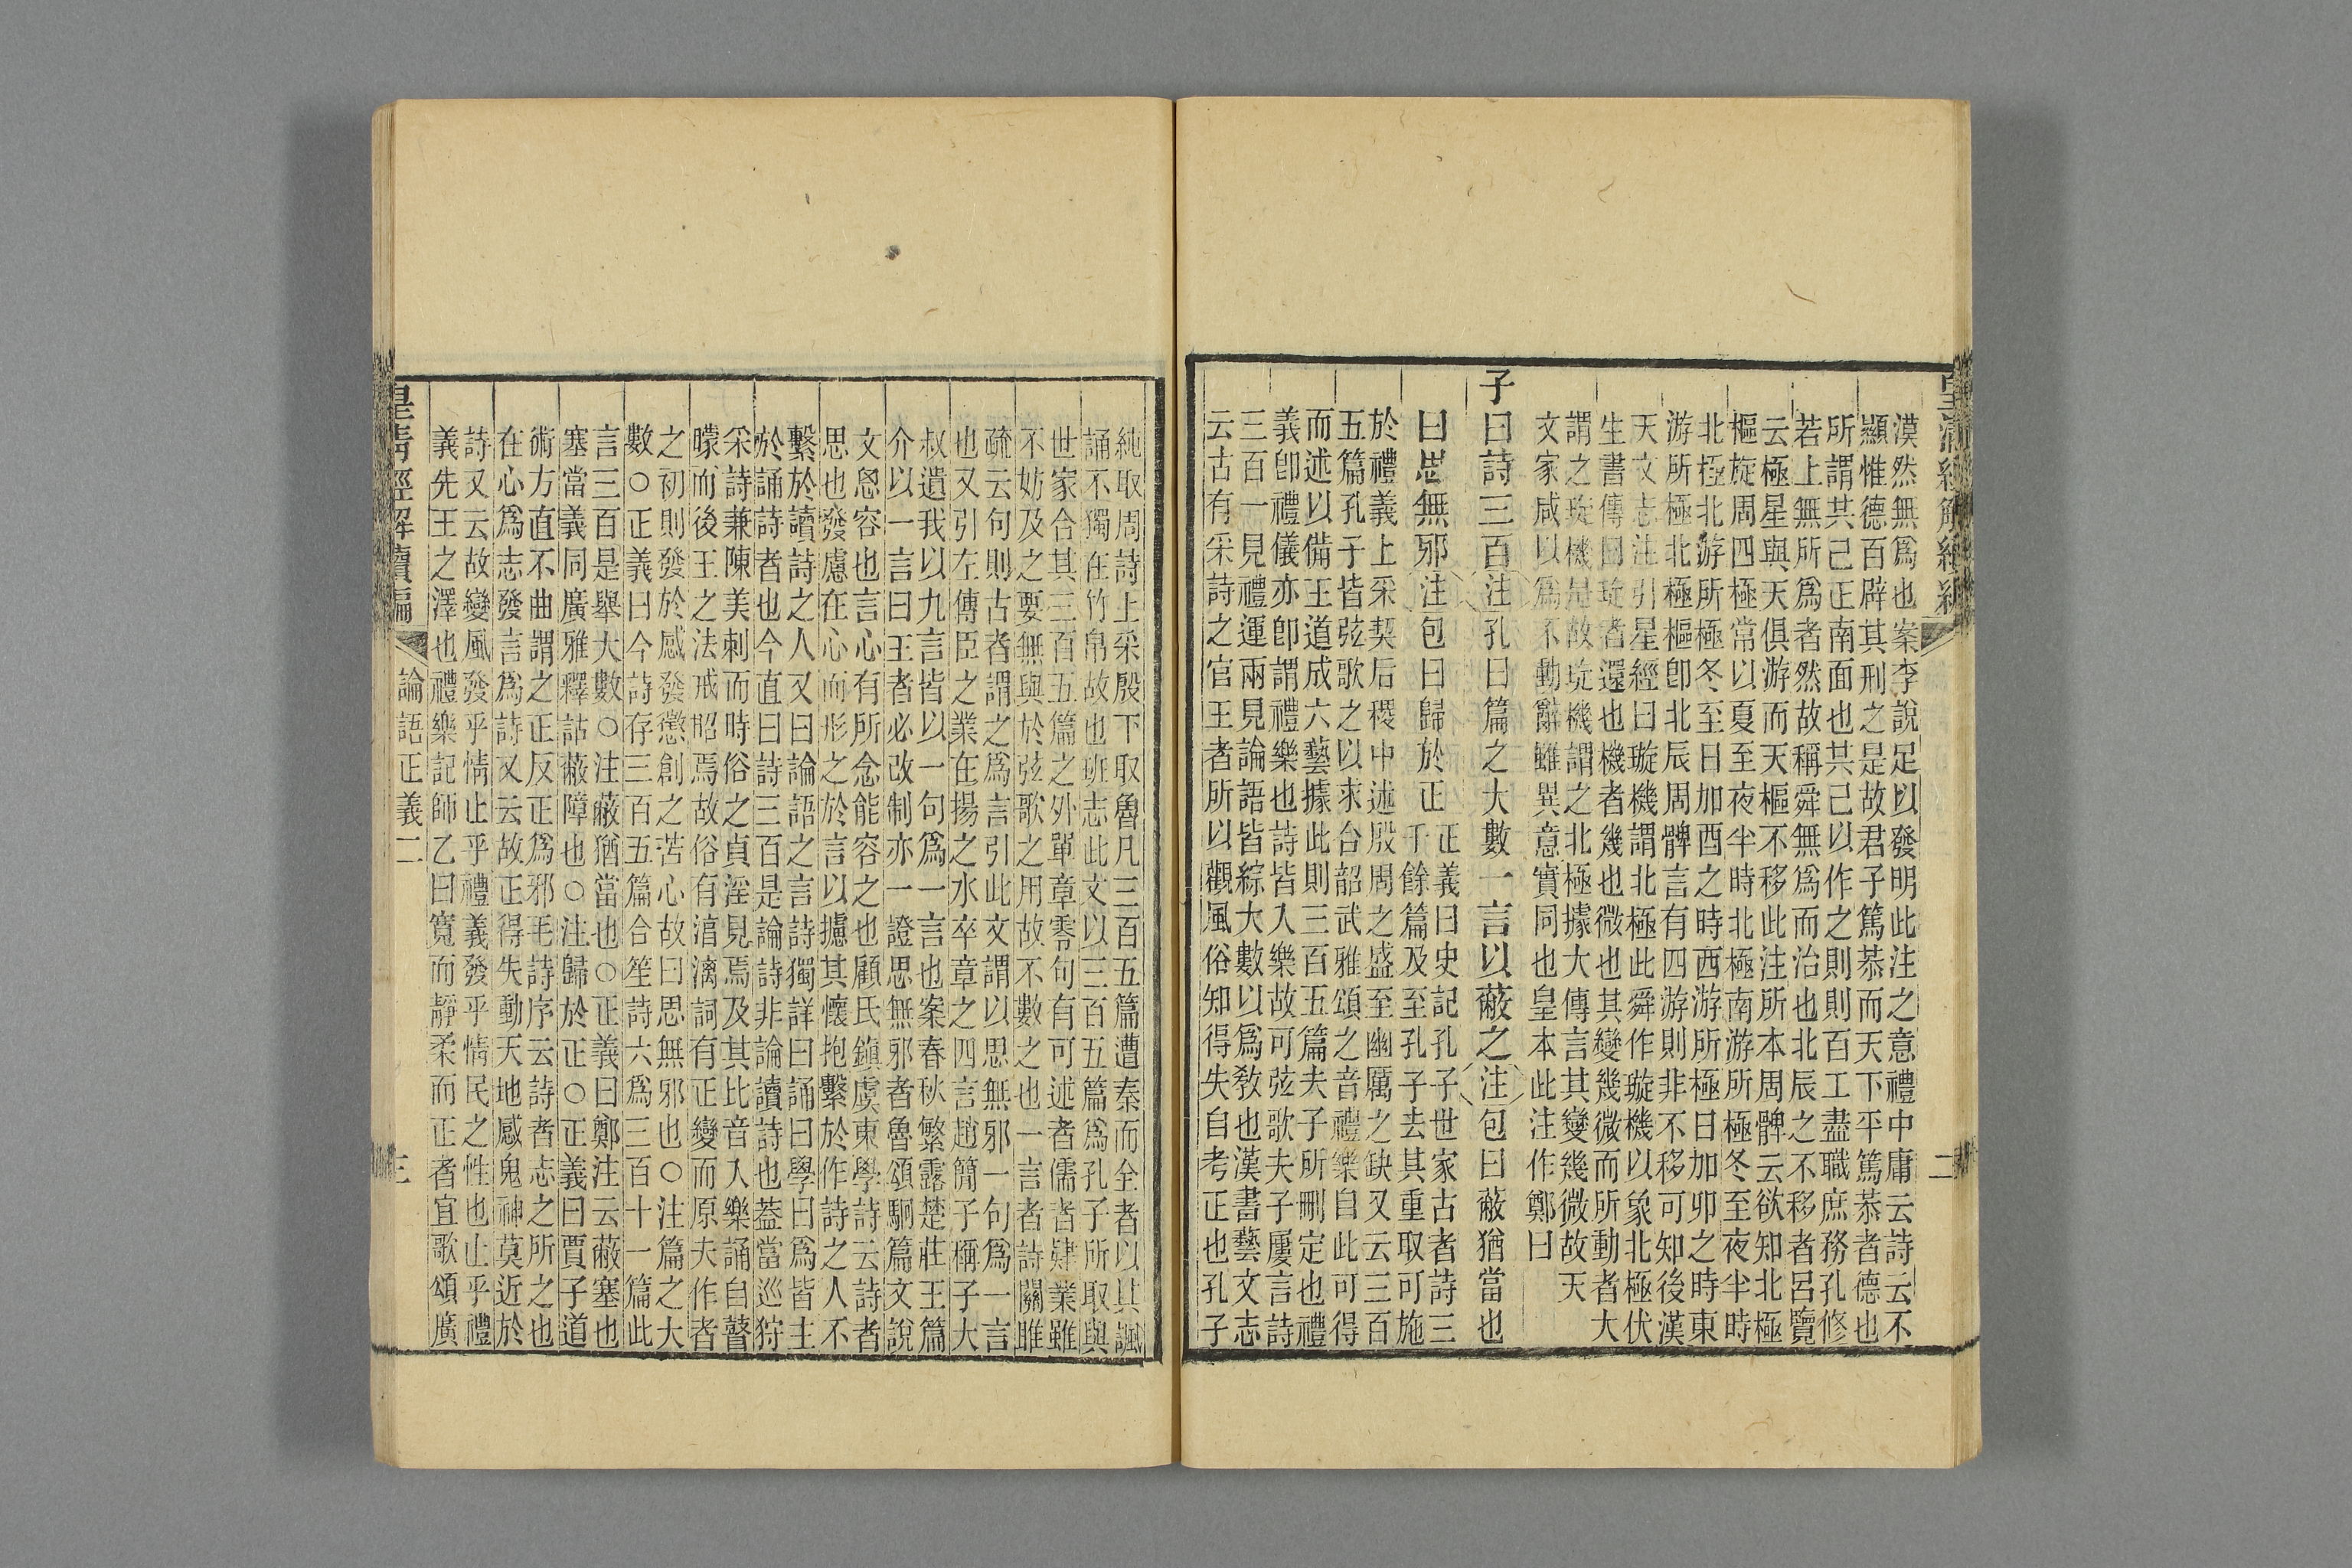 漠然無爲也案李說足以發明此注之意禮中庸云詩云不
顯惟德百辟其刑之是故君子篤恭而天下平篤恭者德也
所謂其己正南面也共己以作之則則百工盡職庶務孔修
若上無所爲者然故稱舜無爲而治也北辰之不移者呂覽
云極星與天俱游而天樞不移此注所本周髀云欲知北極
樞旋周四極常以夏至夜半時北極南游所極冬至夜半時
北極北游所極冬至日加酉之時西游所極日加卯之時東
游所極北極樞卽北辰周髀言有四游則非不移可知後漢
天文志注引星經曰璇機謂北極此舜作璇機以象北極伏
生書傳曰琁者還也機者幾也微也其變幾微而所動者大
謂之琁機是故琁機謂之北極據大傳言其變幾微故天
文家咸以爲不動辭雖異意實同也皇本此注作鄭曰
子曰詩三百注孔曰篇之大數一言以蔽之注包曰蔽猶當也
曰思無邪注包曰歸於正
正義曰史記孔子世家古者詩三
千餘篇及至孔子去其重取可施
於禮義上采契后稷中述殷周之盛至幽厲之缺又云三百
五篇孔子皆弦歌之以求合韶武雅頌之音禮樂自此可得
而述以備王道成六藝據此則三百五篇夫子所刪定也禮
義卽禮儀亦卽謂禮樂也詩皆入樂故可弦歌夫子屢言詩
三百一見禮運兩見論語皆綜大數以爲敎也漢書藝文志
云古有采詩之官王者所以觀風俗知得失自考正也孔子
二
純取周詩上采殷下取魯凡三百五篇遭秦而全者以其諷
誦不獨在竹帛故也班志此文以三百五篇爲孔子所取與
世家合其三百五篇之外單章零句有可述者儒者肄業雖
不妨及之要無與於弦歌之用故不數之也一言者詩關雎
疏云句則古者謂之爲言引此文謂以思無邪一句爲一言
也又引左傳臣之業在揚之水卒章之四言趙簡子稱子大
叔遺我以九言皆以一句爲一言也案春秋繁露楚莊王篇
介以一言曰王者必改制亦一證思無邪者魯頌駉篇文說
文恖容也言心有所念能容之也顧氏鎭虞東學詩云詩者
思也發慮在心而形之於言以攄其懷抱繫於作詩之人不
繫於讀詩之人又曰論語之言詩獨詳曰誦曰學曰爲皆主
於誦詩者也今直曰詩三百是論詩非論讀詩也蓋當巡狩
采詩兼陳美刺而時俗之貞淫見焉及其比音入樂誦自瞽
矇而後王之法戒昭焉故俗有淳漓詞有正變而原夫作者
之初則發於感發懲創之苦心故曰思無邪也○注篇之大
數○正義曰今詩存三百五篇合笙詩六爲三百十一篇此
言三百是舉大數○注蔽猶當也○正義曰鄭注云蔽塞也
塞當義同廣雅釋詁蔽障也○注歸於正○正義曰賈子道
術方直不曲謂之正反正爲邪毛詩序云詩者志之所之也
在心爲志發言爲詩又云故正得失動天地感鬼神莫近於
詩又云故變風發乎情止乎禮義發乎情民之性也止乎禮
義先王之澤也禮樂記師乙曰寬而靜柔而正者宜歌頌廣
皇清經解續編 論語正義二 三